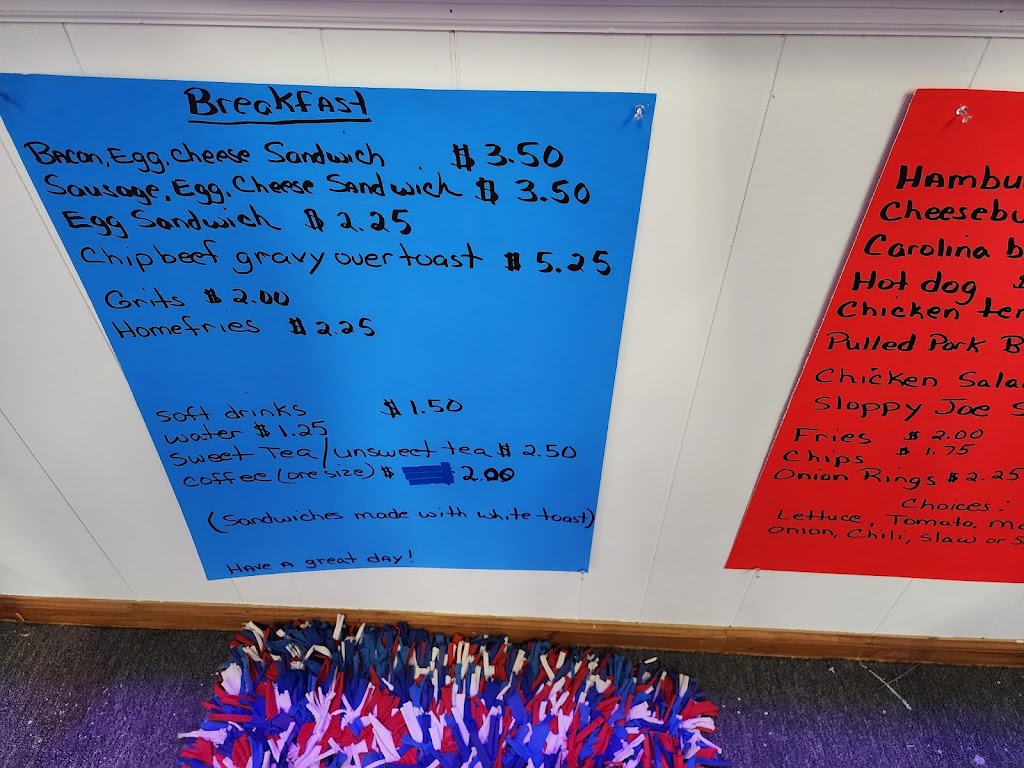 Breakfast
Bacon, Egg, Cheese Sandwich $ 3.50
Sausage, Egg, Cheese Sandwich $ 3.50
Egg Sandwich $ 2.25
Chipbeef gravy over toast $ 5.25
Grits $ 2.00
Homefries $ 2.25
soft drinks $ 1.50
water $ 1.25
Sweet Tea/unsweet tea $ 2.50
coffee (one size) $ 2.00
(Sandwiches made with white toast)
Have a great day!
Hambu
Cheesebu
Carolina b
Hot dog
Chicken ten
Pulled Pork B
Chicken Sala
Sloppy Joe S
Fries $ 2.00
Chips $ 1.75
Onion Rings $ 2.25
Choices:
Lettuce, Tomato,
Onion, Chili, Slaw or